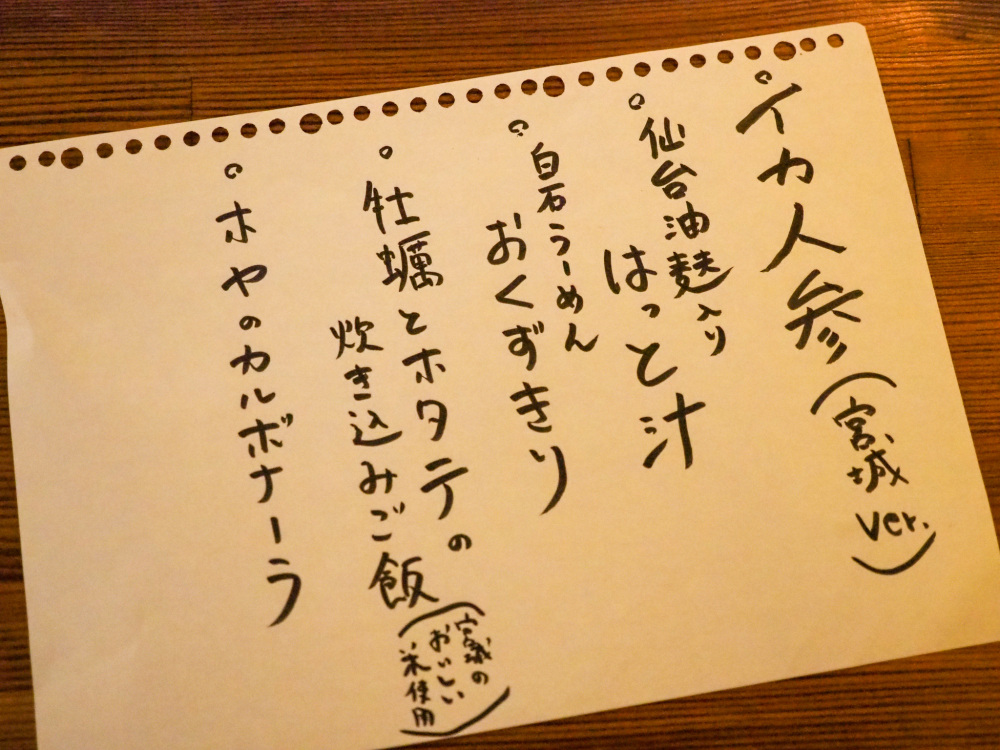 。イカ人参(宮城ver.)
。仙台油麩入り
はっと汁
。白石うーめん
おくずきり
。牡蠣とホタテの
炊き込みご飯
(宮城の
おいしい
米使用)
。ホヤのカルボナーラ